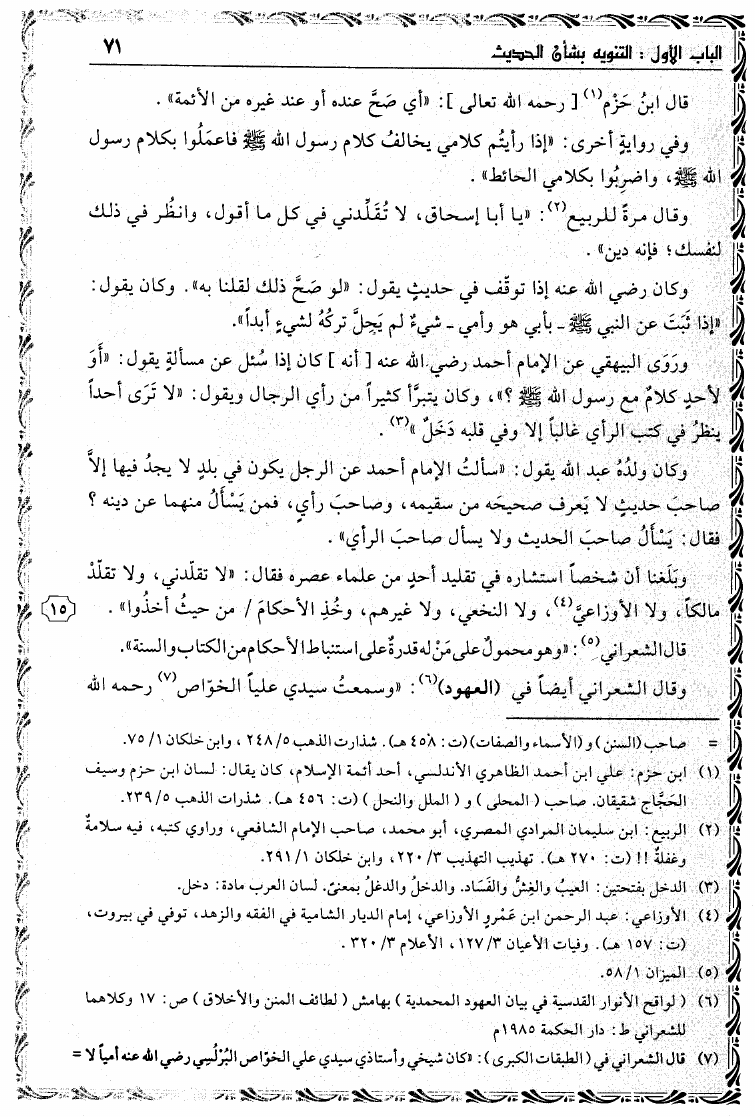 الباب الأول : التنويه بشأن الحديث ٧١
قال ابنُ حَزْم(١) [ رحمه الله تعالى ]: «أي صَحَّ عنده أو عند غيره من الأئمة» .
وفي روايةٍ أخرى: «إذا رأيتُم كلامي يخالفُ كلام رسول الله ﷺ فاعمَلُوا بكلام رسول
الله ﷺ، واضرِبُوا بكلامي الحائط» .
وقال مرةً للربيع(٢): «يا أبا إسحاق، لا تُقَلِّدني في كل ما أقول، وانظُر في ذلك
لنفسك؛ فإنه دين» .
وكان رضي الله عنه إذا توقّف في حديثٍ يقول: «لو صَحَّ ذلك لقلنا به». وكان يقول:
«إذا ثَبَتَ عن النبي ﷺ ـ بأبي هو وأمي ـ شيءٌ لم يَحِلَّ تركُهُ لشيءٍ أبداً».
ورَوَى البيهقي عن الإمام أحمد رضي الله عنه [ أنه ] كان إذا سُئل عن مسألةٍ يقول: «أَوَ
لأحدٍ كلامٌ مع رسول الله ﷺ ؟»، وكان يتبرَّأ كثيراً من رأي الرجال ويقول: «لا تَرَى أحداً
ينظرُ في كتب الرأي غالباً إلا وفي قلبه دَخَلٌ »(٣) .
وكان ولدُهُ عبد الله يقول: «سألتُ الإمام أحمد عن الرجل يكون في بلدٍ لا يجدُ فيها إلاَّ
صاحبَ حديثٍ لا يَعرف صحيحَه من سقيمه، وصاحبَ رأيٍ، فمن يَسْأَلُ منهما عن دينه ؟
فقال: يَسْأَلُ صاحبَ الحديث ولا يسأل صاحبَ الرأي» .
وبَلَغَنا أن شخصاً استشاره في تقليد أحدٍ من علماء عصره فقال: «لا تقلّدني، ولا تقلّدْ
مالكاً، ولا الأوزاعيَّ(٤)، ولا النخعي، ولا غيرهم، وخُذِ الأحكامَ / من حيثُ أخذُوا» . ١٥
قال الشعراني(٥): «وهو محمولٌ على مَنْ له قدرةٌ على استنباط الأحكام من الكتاب والسنة».
وقال الشعراني أيضاً في (العهود)(٦): «وسمعتُ سيدي علياً الخوّاص(٧) رحمه الله
= صاحب (السنن) و (الأسماء والصفات) (ت: ٤٥٨ هـ). شذارت الذهب ٢٤٨/٥ ، وابن خلكان ٧٥/١.
(١) ابن حزم: علي ابن أحمد الظاهري الأندلسي، أحد أئمة الإسلام، كان يقال: لسان ابن حزم وسيف
الحَجَّاج شقيقان. صاحب ( المحلى ) و ( الملل والنحل ) (ت: ٤٥٦ هـ). شذرات الذهب ٢٣٩/٥.
(٢) الربيع: ابن سليمان المرادي المصري، أبو محمد، صاحب الإمام الشافعي، وراوي كتبه، فيه سلامةٌ
وغفلةٌ !! (ت: ٢٧٠ هـ). تهذيب التهذيب ٢٢٠/٣، وابن خلكان ٢٩١/١.
(٣) الدخل بفتحتين: العيبُ والغِشُّ والفَسَاد. والدخلُ والدغلُ بمعنىً. لسان العرب مادة: دخل.
(٤) الأوزاعي: عبد الرحمن ابن عَمْرٍو الأوزاعي، إمام الديار الشامية في الفقه والزهد، توفي في بيروت،
(ت: ١٥٧ هـ). وفيات الأعيان ١٢٧/٣، الأعلام ٣٢٠/٣ .
(٥) الميزان ٥٨/١.
(٦) ( لواقح الأنوار القدسية في بيان العهود المحمدية ) بهامش ( لطائف المنن والأخلاق ) ص: ١٧ وكلاهما
للشعراني ط: دار الحكمة ١٩٨٥م
(٧) قال الشعراني في ( الطبقات الكبرى ): «كان شيخي وأستاذي سيدي علي الخوّاص البُرْلُسِي رضي الله عنه أمياً لا =